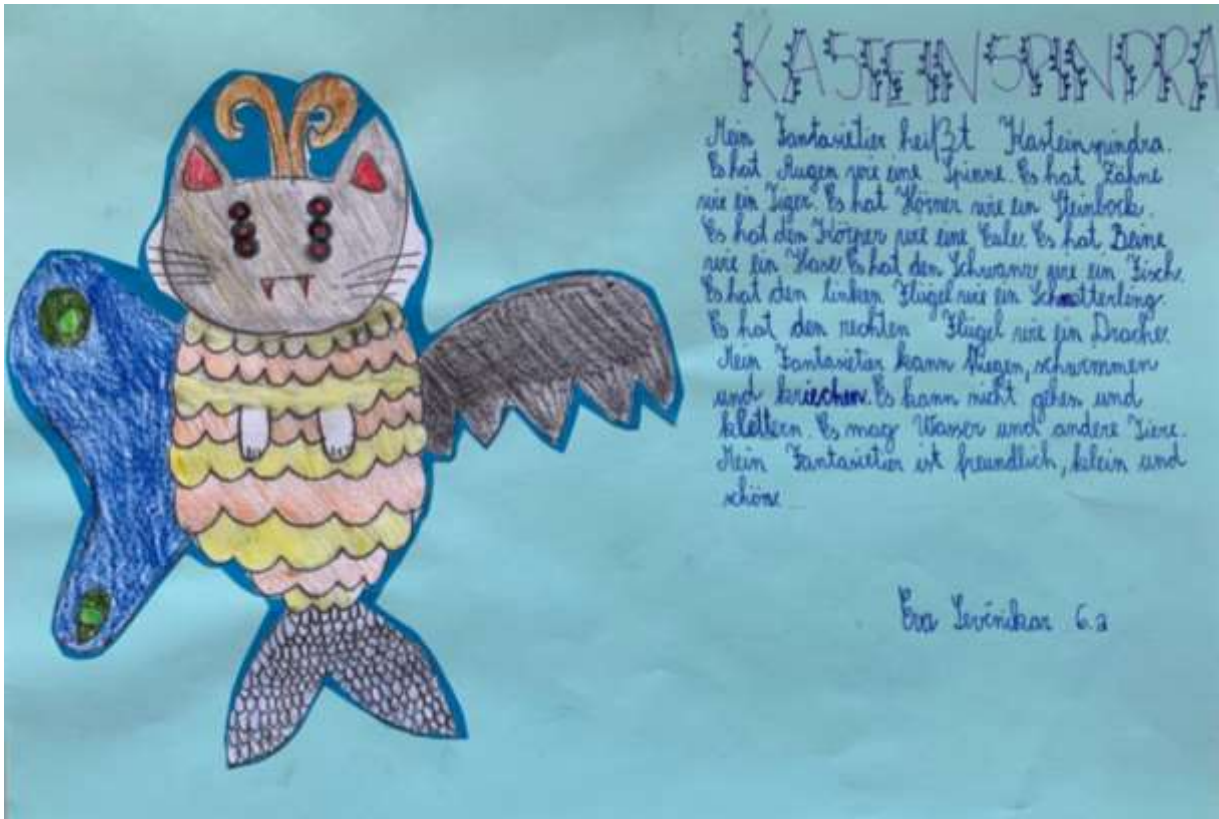 KASTEINSPINDRA
Mein Fantasietier heißt Kasteinspindra.
Es hat Augen wie eine Spinne. Es hat Zähne
wie ein Tiger. Es hat Hörner wie ein Steinbock.
Es hat den Körper wie eine Eule. Es hat Beine
wie ein Hase. Es hat den Schwanz wie ein Fisch.
Es hat den linken Flügel wie ein Schmetterling.
Es hat den rechten Flügel wie ein Drache.
Mein Fantasietier kann fliegen, schwimmen
und kriechen. Es kann nicht gehen und
klettern. Es mag Wasser und andere Tiere.
Mein Fantasietier ist freundlich, klein und
schöne
Eva 6.a